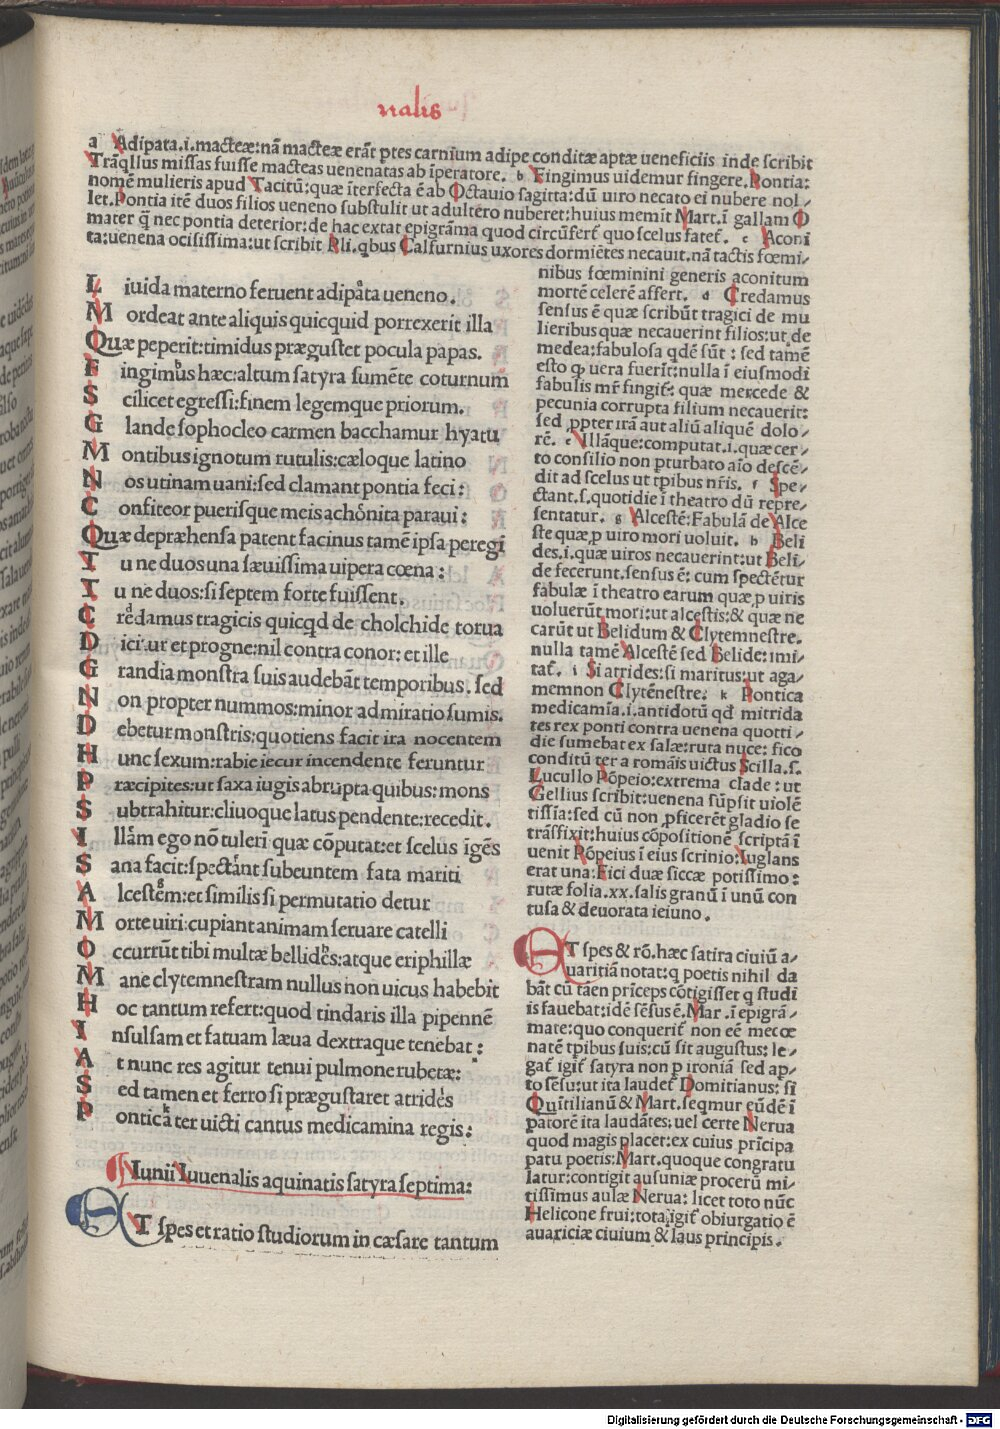 nalis
a Adipata.i.macteæ:nã macteæ erãt ptes carnium adipe conditæ aptæ ueneficiis inde scribit
Trãqllus missas fuisse macteas uenenatas ab iperatore. b Fingimus uidemur fingere. Pontia:
nomẽ mulieris apud Tacitũ:quæ iterfecta ẽ ab Octauio sagitta:dũ uiro necato ei nubere nol/
let. Pontia itẽ duos filios ueneno substulit ut adultero nuberet:huius memit Mart.ĩ gallam O
mater q̃ nec pontia deterior:de hac extat epigrãma quod circũfert̃ quo scelus fatet̃. c Aconi
ta:uenena ocisissima:ut scribit Pli.qbus Calfurnius uxores dormiẽtes necauit.nã tactis fœmi/
L iuida materno feruent adipata ueneno.
M ordeat ante aliquis quicquid porrexerit illa
Quæ peperit:timidus prægustet pocula papas.
F ingimus hæc:altum satyra sumẽte coturnum
S cilicet egressi:finem legemque priorum.
G lande sophocleo carmen bacchamur hyatu
M ontibus ignotum rutulis:cæloque latino
N os utinam uani:sed clamant pontia feci:
C onfiteor puerisque meis achonita paraui:
Quæ depræhensa patent facinus tamẽ ipsa peregi
T u ne duos una sæuissima uipera cœna:
T u ne duos:si septem forte fuissent.
C redamus tragicis quicqd de cholchide torua
D icit̃ur et progne:nil contra conor: et ille
G randia monstra suis audebãt temporibus. sed
N on propter nummos:minor admiratio sumis.
D ebetur monstris:quotiens facit ira nocentem
H unc sexum:rabie iecur incendente feruntur
P ræcipites:ut saxa iugis abrupta quibus: mons
S ubtrahitur:cliuoque latus pendente:recedit.
I llam ego nõ tuleri quæ cõputat:et scelus igẽs
S ana facit:spectant subeuntem fata mariti
A lcestem:et similis si permutatio detur
M orte uiri:cupiant animam seruare catelli
O ccurrũt tibi multæ bellides:atque eriphillæ
M ane clytemnestram nullus non uicus habebit
H oc tantum refert:quod tindaris illa pipennẽ
I nsulsam et fatuam læua dextraque tenebat:
A t nunc res agitur tenui pulmone rubetæ:
S ed tamen et ferro si prægustaret atrides
P ontica ter uicti cantus medicamina regis:
Iunii Iuuenalis aquinatis satyra septima:
ET spes et ratio studiorum in cæsare tantum
nibus fœminini generis aconitum
mortẽ celerẽ affert. d Credamus
sensus ẽ quæ scribũt tragici de mu
lieribus quæ necauerint filios:ut de
medea:fabulosa qdẽ sũt : sed tamẽ
esto q uera fuerit:nulla ĩ eiusmodi
fabulis mr̃ fingit̃: quæ mercede &
pecunia corrupta filium necauerit:
sed ,ppter irã aut aliũ aliquẽ dolo/
rẽ. e Illãque:computat.i.quæ cer/
to consilio non pturbato aĩo descẽ/
dit ad scelus ut tpibus nr̃is. f Spe/
ctant.s.quotidie ĩ theatro dũ repre/
sentatur. g Alcestẽ:Fabulã de Alce
ste quæ,p uiro mori uoluit. h Beli
des.i.quæ uiros necauerint:ut Beli/
de fecerunt.sensus ẽ: cum spectẽtur
fabulæ ĩ theatro earum quæ,p uiris
uoluerũt mori:ut alcestis:& quæ ne
carũt ut Belidum & Clytemnestre.
nulla tamẽ Alcestẽ sed Belide: imi/
tat̃. i Si atrides:si maritus:ut aga/
memnon Clytẽnestre. k Pontica
medicamĩa.i.antidotũ qd mitrida
tes rex ponti contra uenena quotti/
die sumebat ex salæ:ruta nuce: fico
conditũ ter a romãis uictus Scilla.s.
Lucullo Põpeio:extrema clade : ut
Gellius scribit:uenena sũpsit uiolẽ
tissia:sed cũ non ,pficerẽt gladio se
trãsfixit:huius cõpositionẽ scriptã ĩ
uenit Põpeius ĩ eius scrinio:Iuglans
erat una:Fici duæ siccæ potissimo:
rutæ folia.xx.salis granũ ĩ unũ con
tusa & deuorata ieiuno.
ET spes & rõ.hæc satira ciuiũ a/
uaritiã notat:q poetis nihil da
bãt cũ taẽn prĩceps cõtigisset q studi
is fauebat:idẽ sẽsus ẽ.Mar.ĩ epigrã/
mate:quo conquerit̃ non eẽ mecœ
natẽ tpibus suis:cũ sit augustus: le/
gat̃ igit̃ satyra non p ironiã sed ap/
to sẽsu:ut ita laudet̃ Domitianus: si
Quĩtilianũ & Mart.seqmur eũdẽ ĩ
patorẽ ita laudãtes:uel certe Nerua
quod magis placet:ex cuius prĩcipa
patu poetis:Mart.quoque congratu
latur:contigit ausuniæ procerũ mi/
tissimus aulæ Nerua: licet toto nũc
Helicone frui:tota igit̃ obiurgatio ẽ
auariciæ ciuium & laus principis.
Digitalisierung gefördert durch die Deutsche Forschungsgemeinschaft - DFG